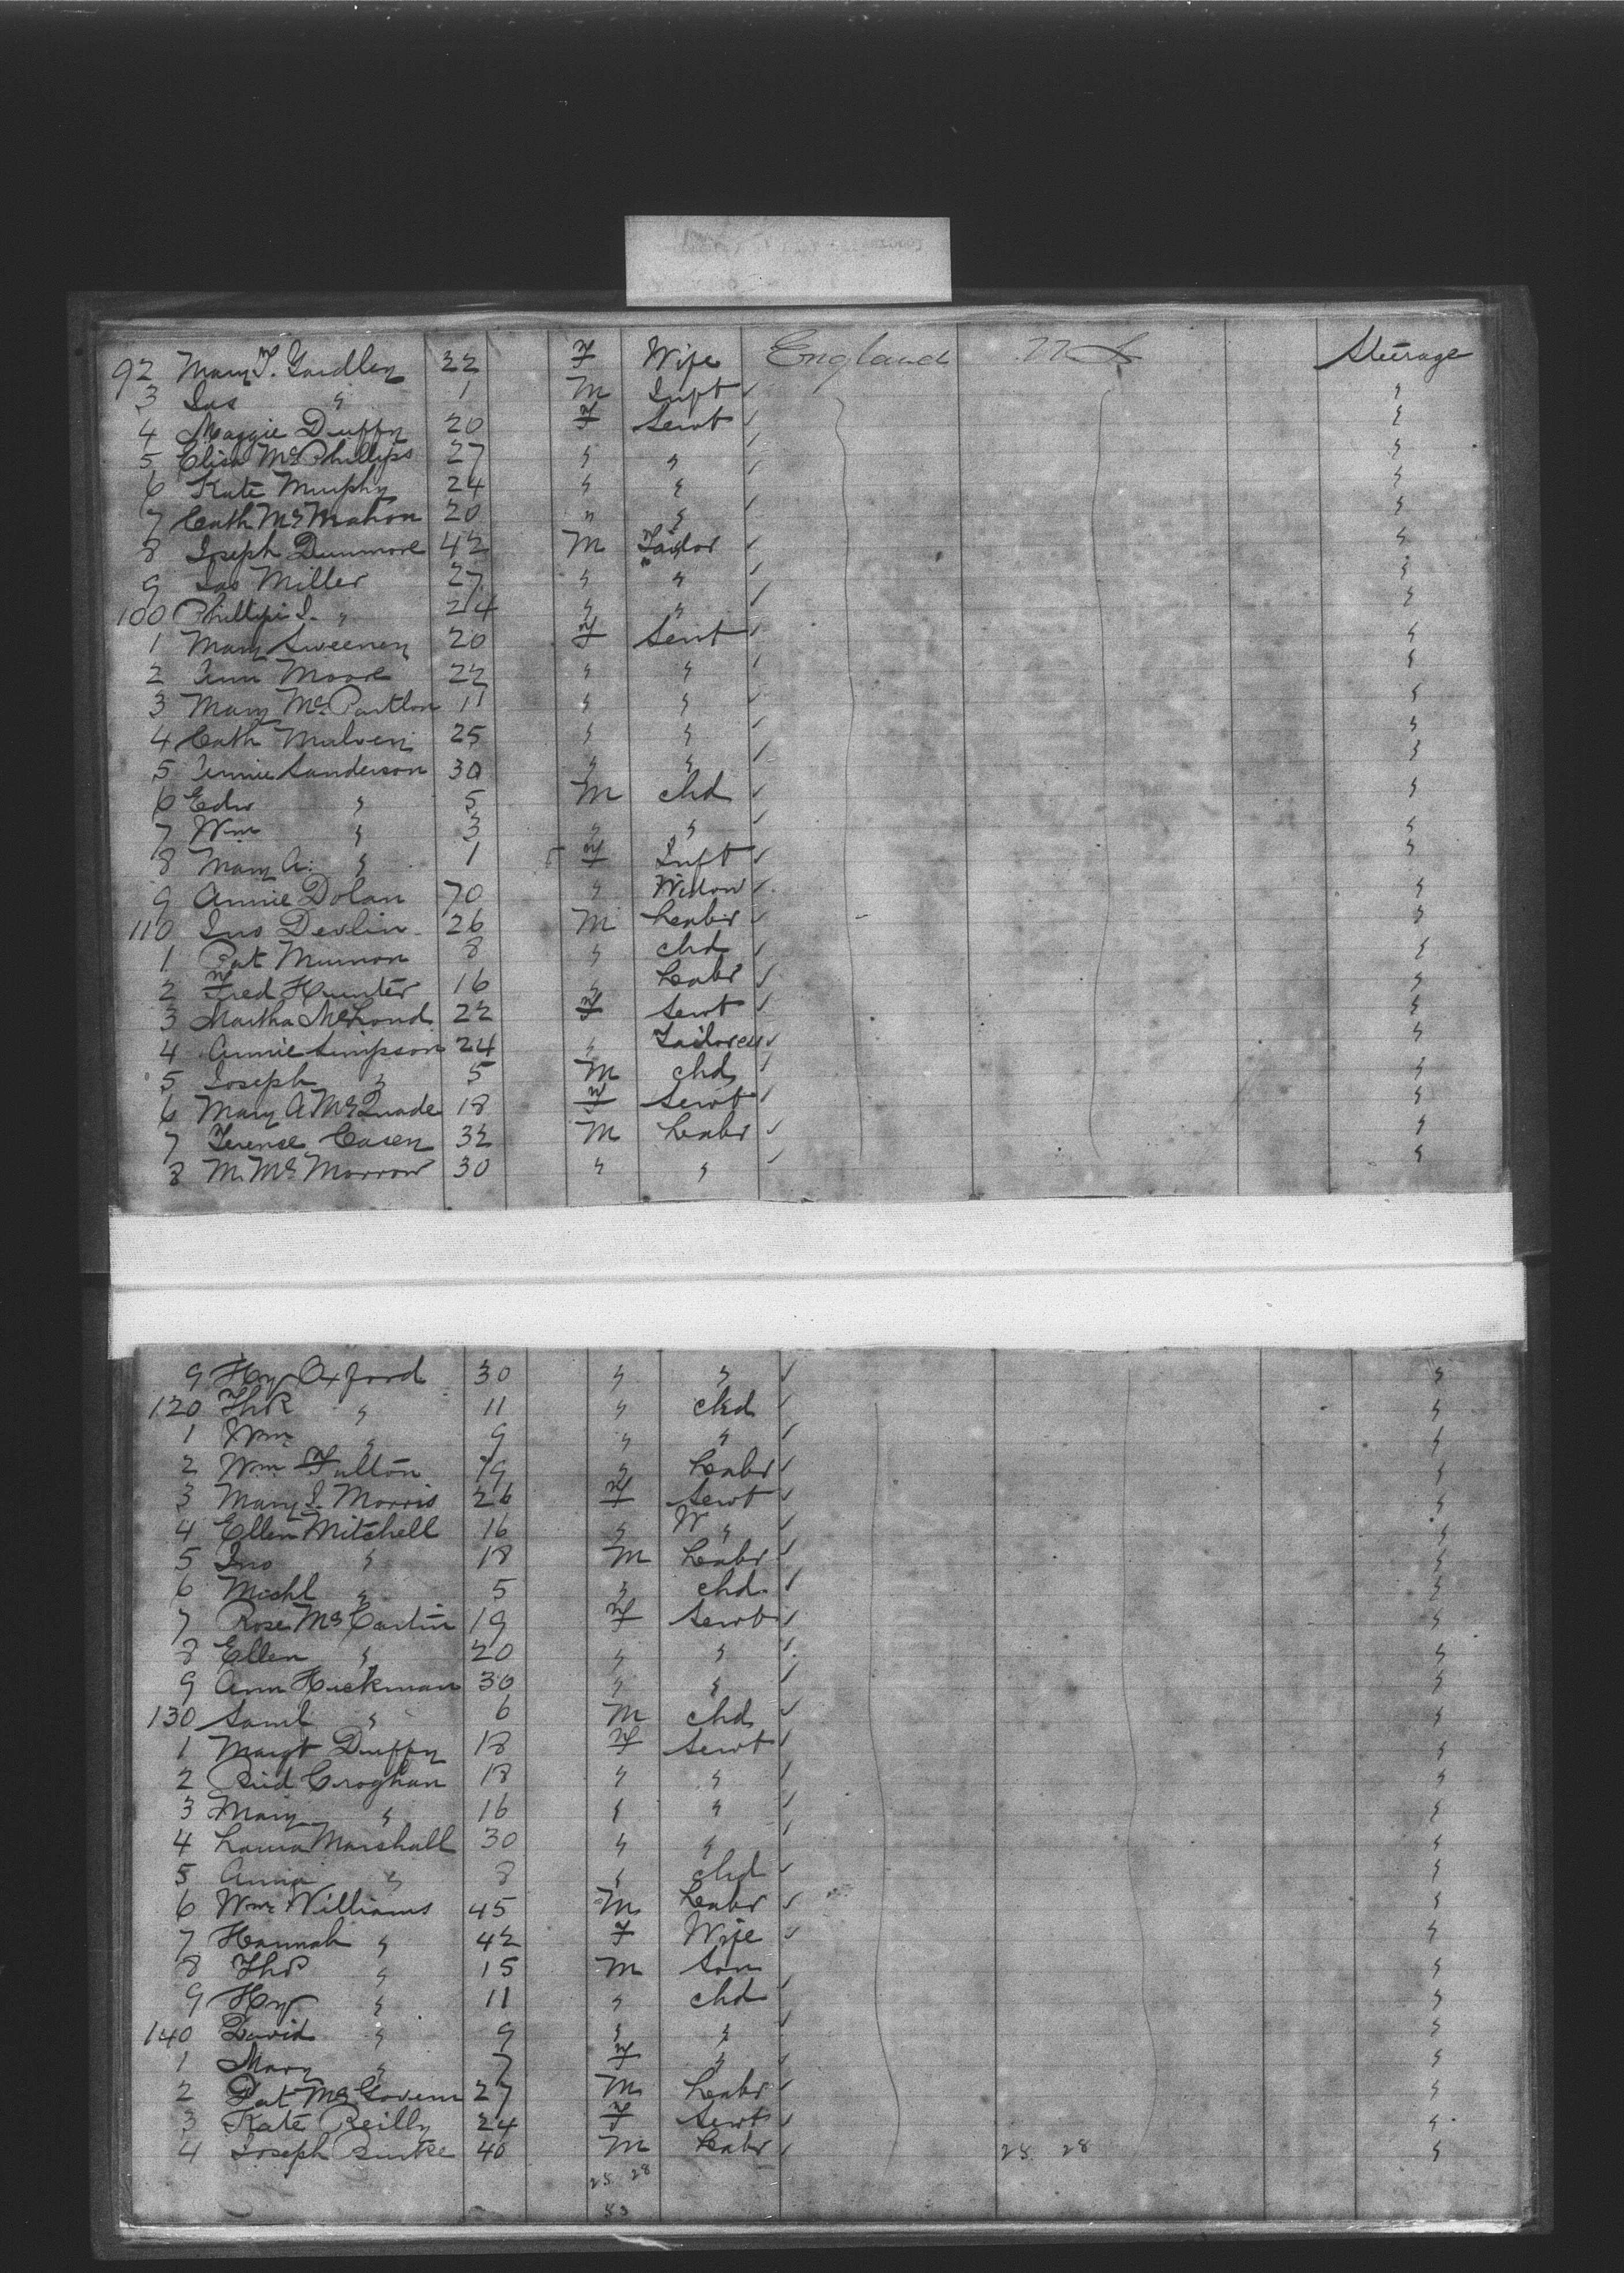 92 Mary T. Yardley 32 F Wife England U S Steerage
3 Jas " 1 M Inft "
4 Maggie Duffy 20 F Servt "
5 Elisa McPhillips 27 " " "
6 Kate Murphy 24 " " "
7 Cath McMahon 20 " " "
8 Joseph Dunmore 42 M Tailor "
9 Jas Miller 27 " " "
100 Phillipi J. " 24 " " "
1 Mary Sweeney 20 F Servt "
2 Ann Moore 22 " " "
3 Mary McPartlon 11 " " "
4 Cath 25 " " "
5 Annie Sanderson 30 " " "
6 Edw " 5 M chd "
7 Wm " 3 " " "
8 Mary A. " 1 F Inft "
9 Annie Dolan 70 " Widow "
110 Jno Devlin 26 M Labr "
1 Pat 8 " chd "
2 Fred Hunter 16 " Labr "
3 Martha 22 F Servt "
4 Annie Simpson 24 " Tailoress "
5 Joseph " 5 M chd "
6 Mary A McQuade 18 F Servt "
7 Terence Casey 32 M Labr "
8 M. McMorrow 30 " "
9 Hy Oxford 30 " " "
120 Ths " 11 " chd "
1 Wm " 9 " " "
2 Wm Fulton 19 " Labr "
3 Mary J. Morris 26 F Servt "
4 Ellen Mitchell 16 " W " "
5 Jno " 18 M Labr "
6 Michl " 5 " chd "
7 Rose McCartin 19 F Servt "
8 Ellen " 20 " " "
9 Ann Hickman 30 " " "
130 Saml " 6 M chd "
1 Margt Duffy 18 F Servt "
2 Brid Croghan 18 " " "
3 Mary " 16 " " "
4 Laura Marshall 30 " " "
5 Annie " 8 " chd "
6 Wm Williams 45 M Labr "
7 Hannah " 42 F Wife "
8 Ths " 15 M Son "
9 Hy " 11 " chd "
140 David " 9 " " "
1 Mary " 7 F " "
2 Pat McGovern 27 M Labr "
3 Kate Reilly 24 F Servt "
4 Joseph Burke 40 M Labr 25 28 "
25 28
53